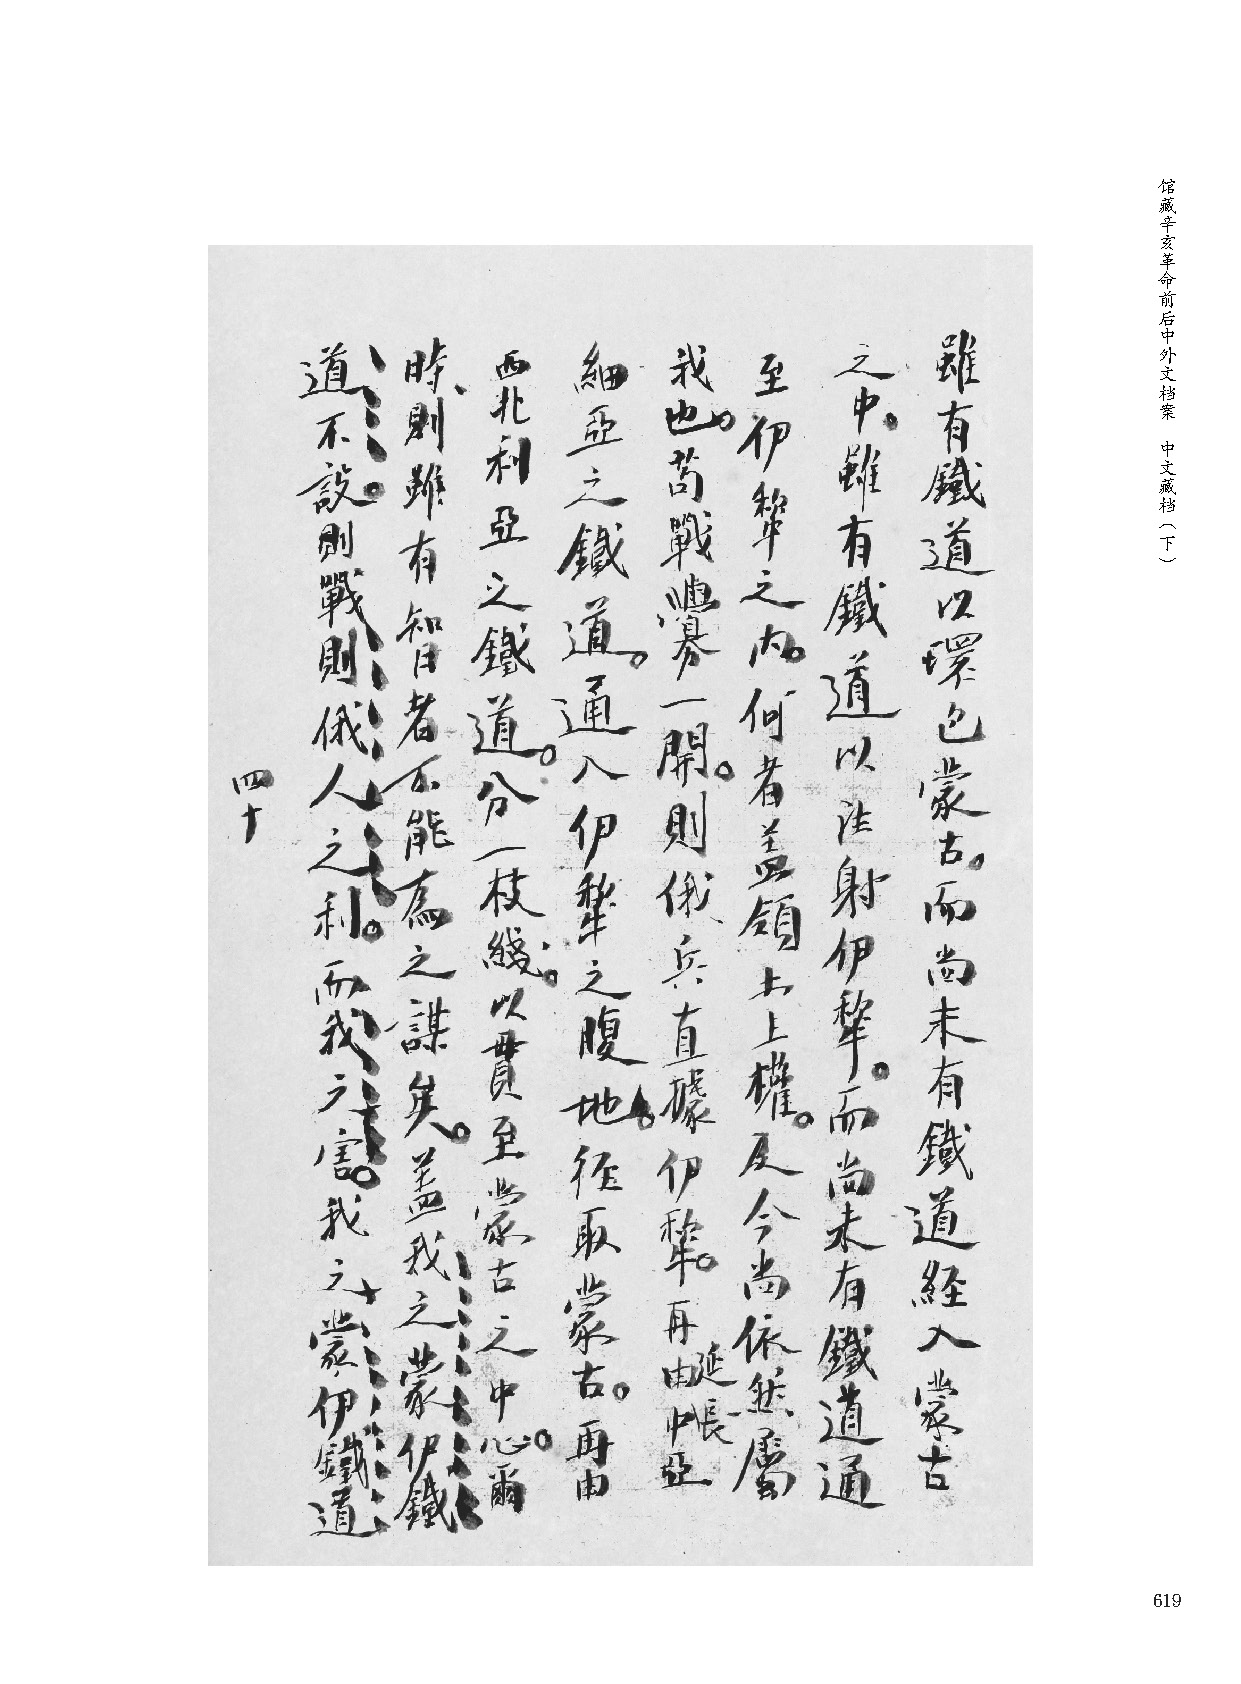 馆藏辛亥革命前后中外文档案 中文藏档（下）
雖有鐵道以環包蒙古。而尚未有鐵道経入蒙古
之中。雖有鐵道以注射伊犂。而尚未有鐵道通
至伊犂之内。何者盖領土上權。及今尚依然屬
我也。苟戰釁一開。則俄兵直據伊犂。再由延長中亞
細亞之鐵道。通入伊犂之腹地。径取蒙古。再由
西北利亞之鐵道。分一枝綫。以貫至蒙古之中心。爾
時、則雖有智者不能為之謀矣。盖我之蒙伊鐵
道不設。則戰則俄人之利。而我之害。我之蒙伊鐵道
四十
619